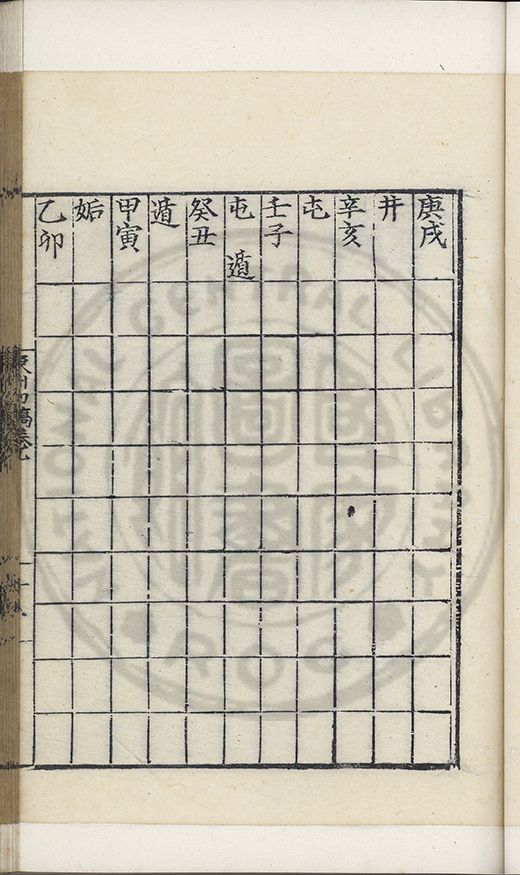 庚戌
井
辛亥
屯
壬子
屯 遁
癸丑
遁
甲寅
姤
乙卯